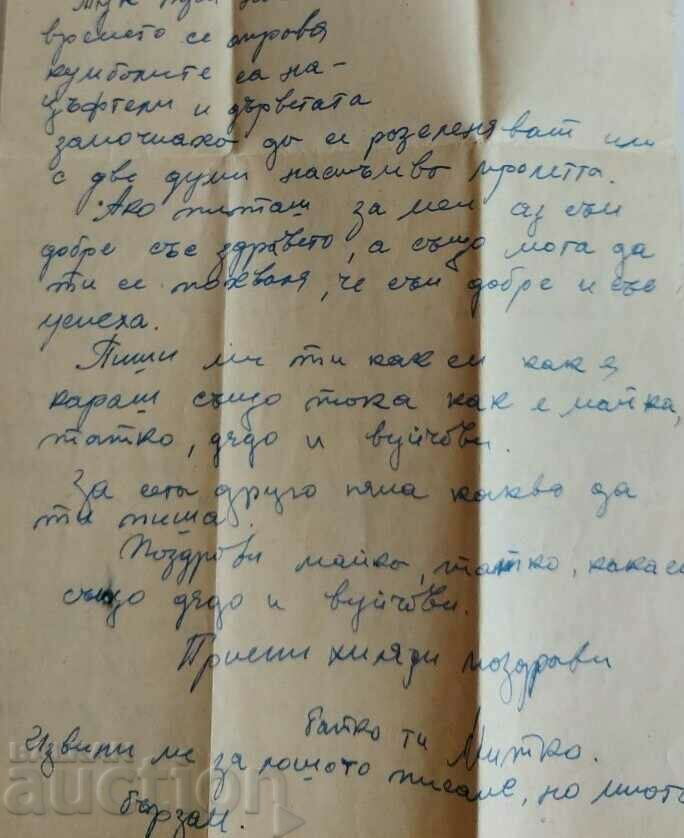 Тук при нас
времето се оправя
кумбулите са на-
цъфтели и дърветата
започнаха да се розеленяват или
с две думи настъпва пролетта.
Ако питаш за мен аз съм
добре със здравето, а също мога да
ти се похваля, че съм добре и със
успеха.
Пиши ми ти как си как я
караш също тока как е майка,
татко, дядо и вуйчови.
За сега друго няма какво да
ти пиша.
Поздрови майка, татко, кака си
също дядо и вуйчови.
Приеми хиляди поздрави
батко ти Митко.
Извини ме за лошото писане, но много
бързам.
auction